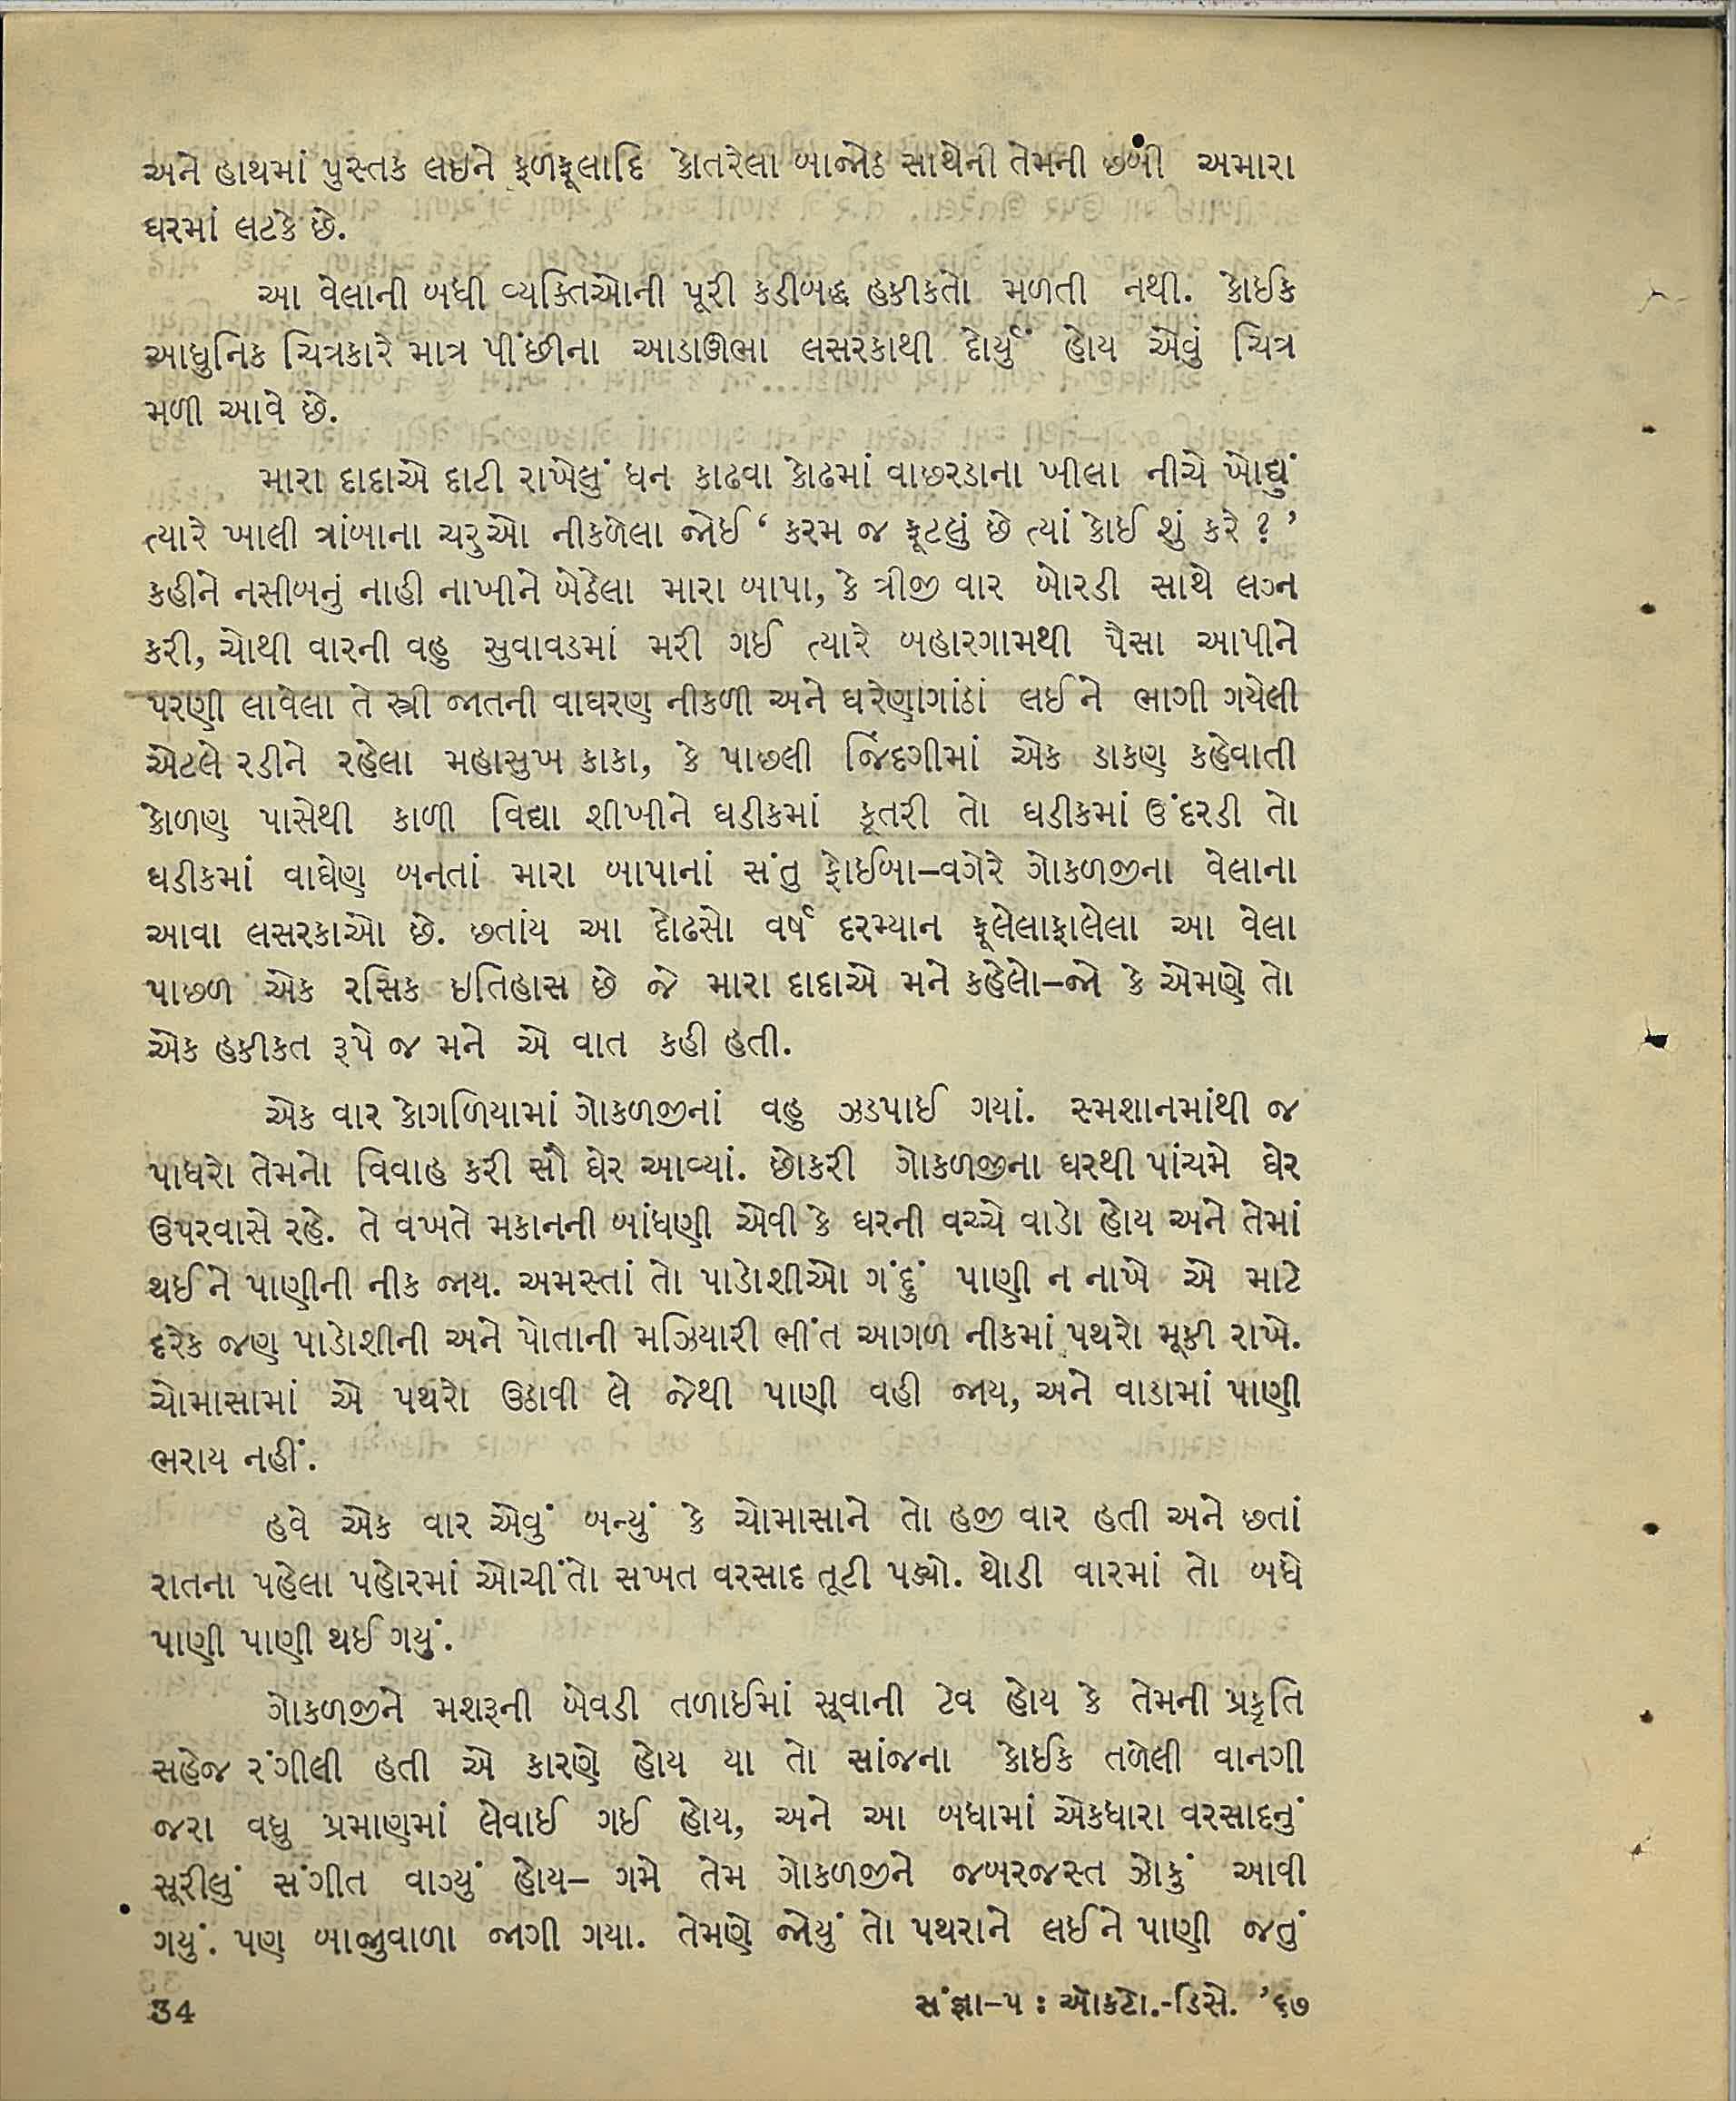 અને હાથમાં પુસ્તક લઇને ફળફૂલાદિ કોતરેલા બાજોઠ સાથેની તેમની છબી અમારા
ઘરમાં લટકે છે.
આ વેલાની બધી વ્યક્તિઓની પૂરી કડીબદ્ધ હકીકતો મળતી નથી. કોઈક
આધુનિક ચિત્રકારે માત્ર પીંછીના આડાઊભા લસરકાથી દોર્યું હોય એવું ચિત્ર
મળી આવે છે.
મારા દાદાએ દાટી રાખેલું ધન કાઢવા કોઢમાં વાછરડાના ખીલા નીચે ખોદ્યું
ત્યારે ખાલી ત્રાંબાના ચરુઓ નીકળેલા જોઈ ‘ કરમ જ ફૂટલું છે ત્યાં કોઈ શું કરે ? ’
કહીને નસીબનું નાહી નાખીને બેઠેલા મારા બાપા, કે ત્રીજી વાર બોરડી સાથે લગ્ન
કરી, ચોથી વારની વહુ સુવાવડમાં મરી ગઈ ત્યારે બહારગામથી પૈસા આપીને
પરણી લાવેલા તે સ્ત્રી જાતની વાઘરણ નીકળી અને ઘરેણાંગાંઠાં લઈને ભાગી ગયેલી
એટલે રડીને રહેલા મહાસુખ કાકા, કે પાછલી જિંદગીમાં એક ડાકણ કહેવાતી
કોળણ પાસેથી કાળી વિદ્યા શીખીને ઘડીકમાં કૂતરી તો ઘડીકમાં ઉંદરડી તો
ઘડીકમાં વાઘેણ બનતાં મારા બાપાનાં સંતુ ફોઈબા–વગેરે ગોકળજીના વેલાના
આવા લસરકાઓ છે. છતાંય આ દોઢસો વર્ષ દરમ્યાન ફૂલેલાફાલેલા આ વેલા
પાછળ એક રસિક ઇતિહાસ છે જે મારા દાદાએ મને કહેલો–જો કે એમણે તો
એક હકીકત રૂપે જ મને એ વાત કહી હતી.
એક વાર કોગળિયામાં ગોકળજીનાં વહુ ઝડપાઈ ગયાં. સ્મશાનમાંથી જ
પાધરો તેમનો વિવાહ કરી સૌ ઘેર આવ્યાં. છોકરી ગોકળજીના ઘરથી પાંચમે ઘેર
ઉપરવાસે રહે. તે વખતે મકાનની બાંધણી એવી કે ઘરની વચ્ચે વાડો હોય અને તેમાં
થઈને પાણીની નીક જાય. અમસ્તાં તો પાડોશીઓ ગંદું પાણી ન નાખે એ માટે
દરેક જણ પાડોશીની અને પોતાની મઝિયારી ભીંત આગળ નીકમાં પથરો મૂકી રાખે.
ચોમાસામાં એ પથરો ઉઠાવી લે જેથી પાણી વહી જાય, અને વાડામાં પાણી
ભરાય નહીં.
હવે એક વાર એવું બન્યું કે ચોમાસાને તો હજી વાર હતી અને છતાં
રાતના પહેલા પહોરમાં ઓચીંતો સખત વરસાદ તૂટી પડ્યો. થોડી વારમાં તો બધે
પાણી પાણી થઈ ગયું.
ગોકળજીને મશરૂની બેવડી તળાઈમાં સૂવાની ટેવ હોય કે તેમની પ્રકૃતિ
સહેજ રંગીલી હતી એ કારણે હોય યા તો સાંજના કોઈક તળેલી વાનગી
જરા વધુ પ્રમાણમાં લેવાઈ ગઈ હોય, અને આ બધામાં એકધારા વરસાદનું
સૂરીલું સંગીત વાગ્યું હોય– ગમે તેમ ગોકળજીને જબરજસ્ત ઝોકું આવી
ગયું. પણ બાજુવાળા જાગી ગયા. તેમણે જોયું તો પથરાને લઈને પાણી જતું
34 સંજ્ઞા–૫ : ઑક્ટો.-ડિસે. ’૬૭